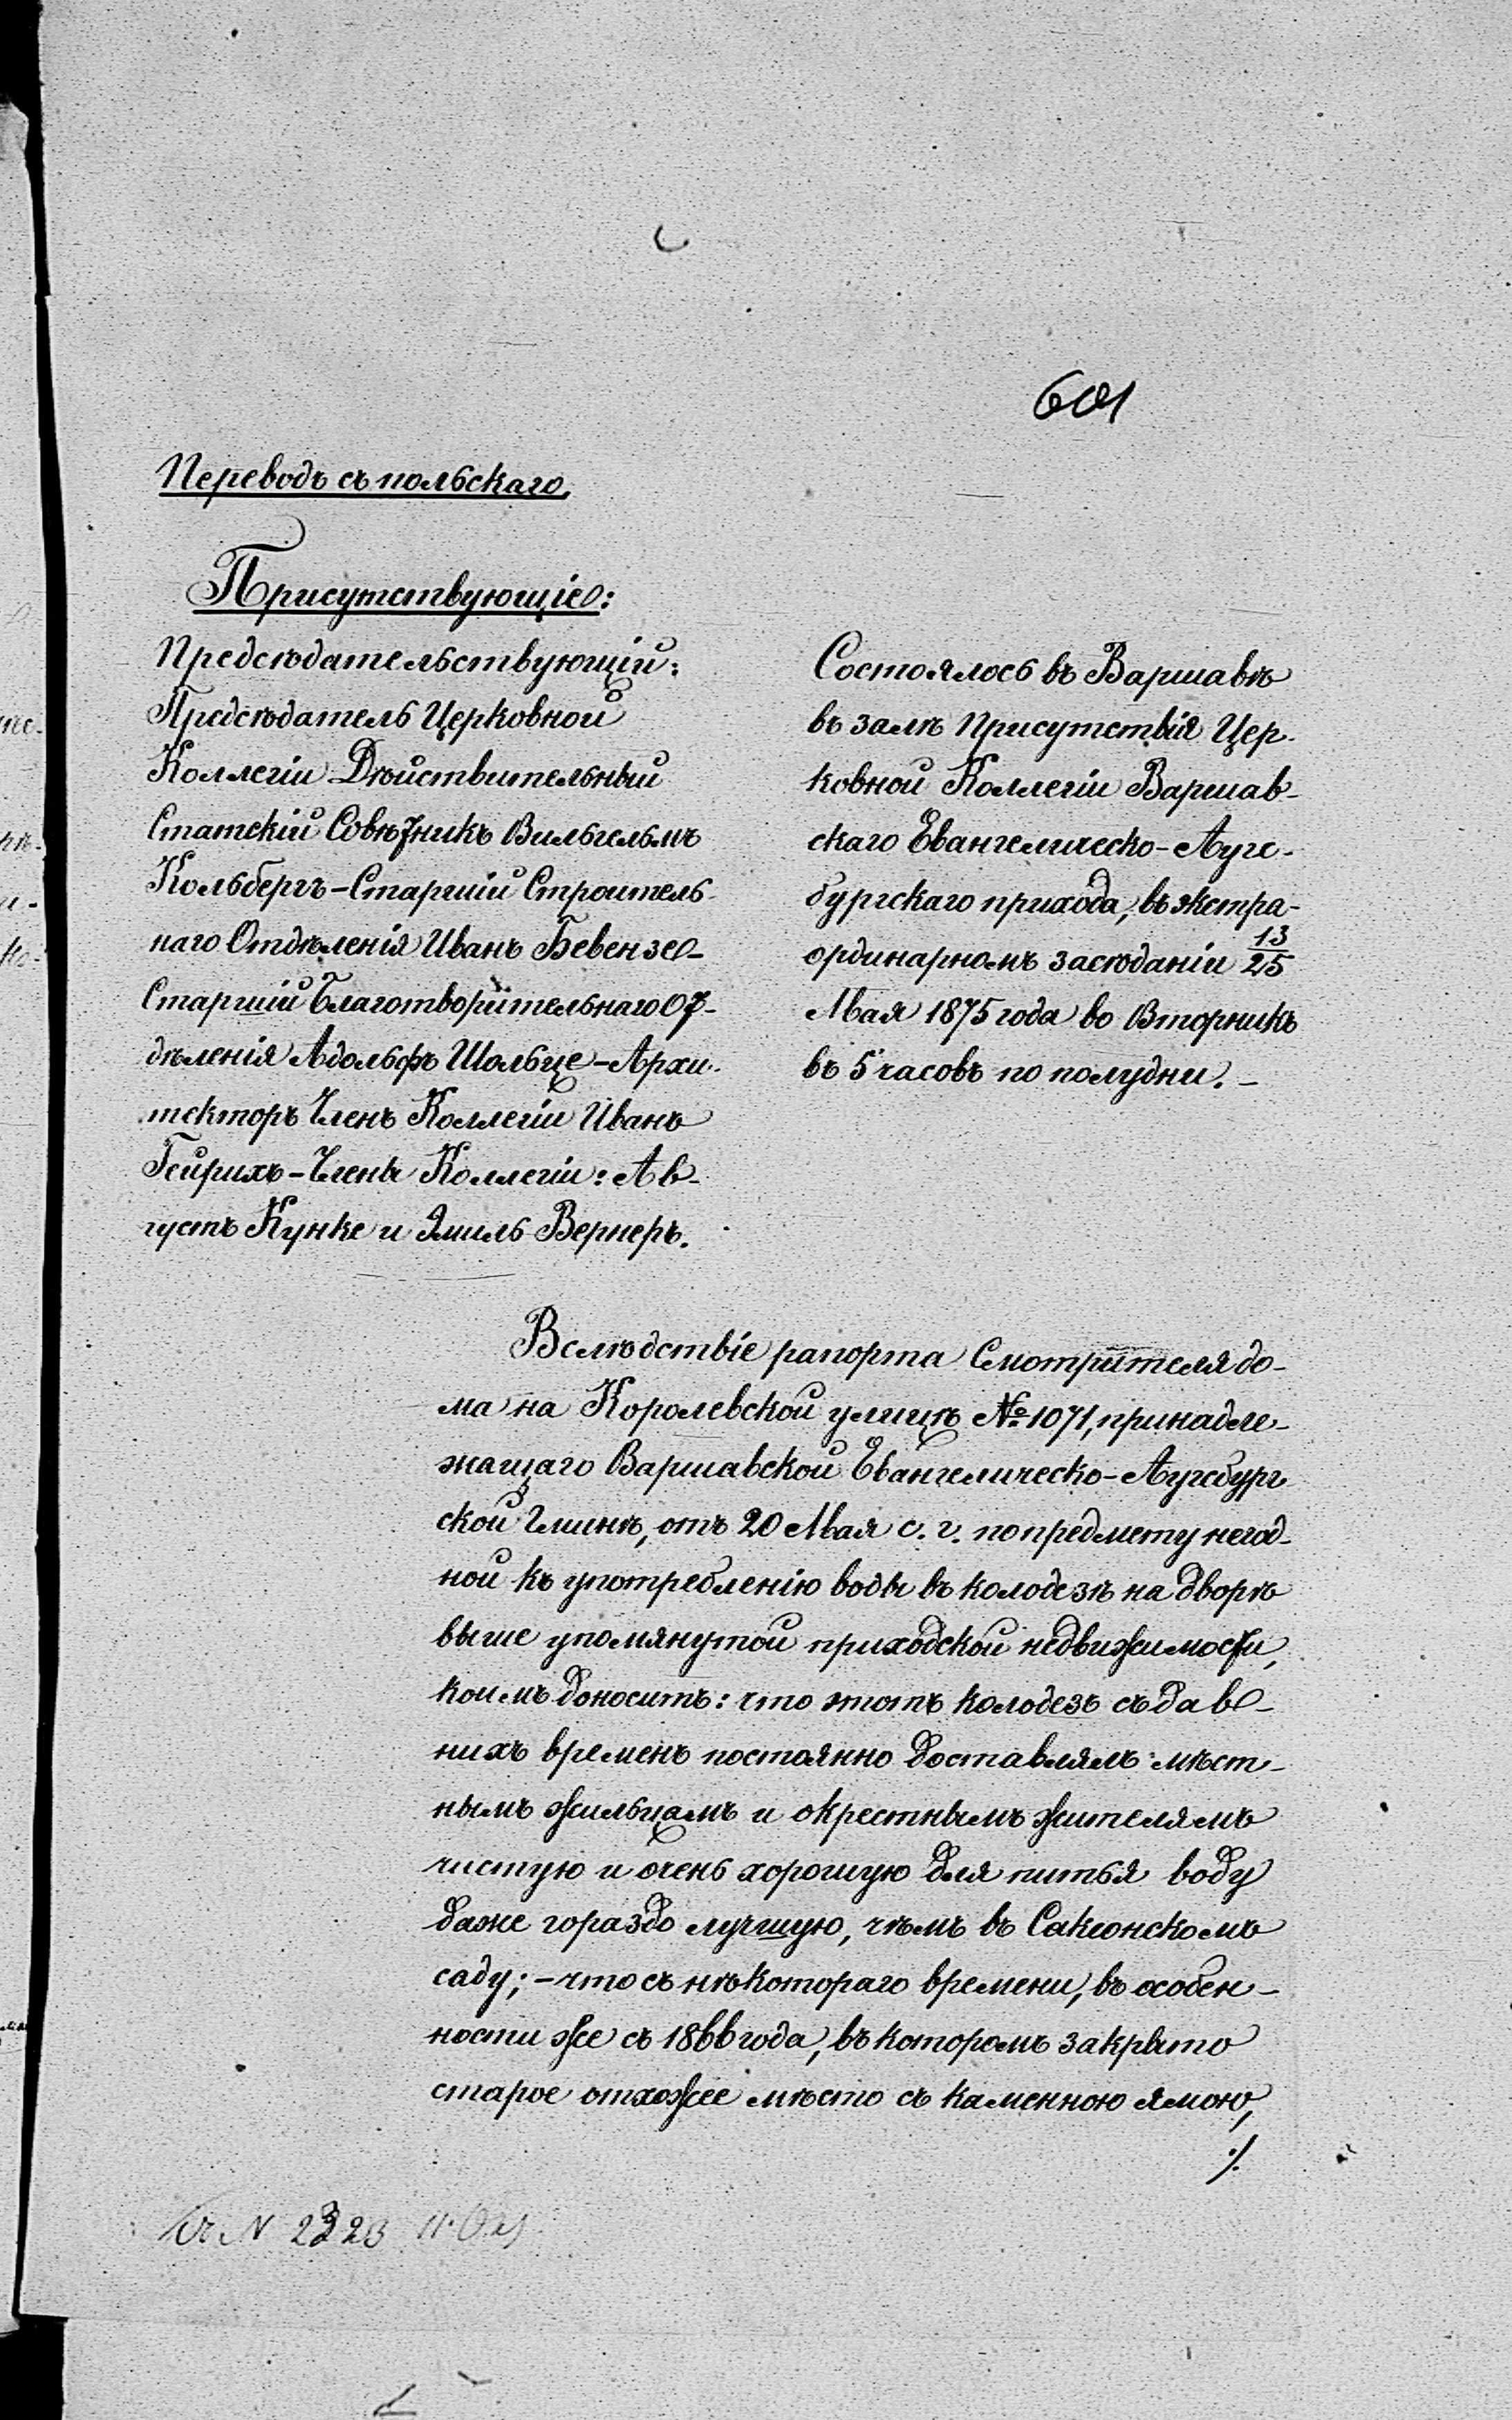 601
Переводъ съ польскаго.
Присутствующіе:
Предсѣдательствующій:
Предсѣдатель Церковной
Коллегіи Дѣйствительный
Статскій Совѣтникъ Вильгельмъ
Кольбергъ – Старшій Строитель-
наго Отдѣленія Иванъ Бевензе –
Старшій Благотворительнаго От-
дѣленія Адольфъ Шольце – Архи-
текторъ Членъ Коллегіи Иванъ
Гейрихъ – Члены Коллегіи: Ав-
густъ Кунке и Эмиль Вернеръ.
Состоялось въ Варшавѣ
въ залѣ Присутствія Цер-
ковной Коллегіи Варшав-
скаго Евангелическо-Аугс-
бургскаго прихода, въ экстра-
ординарномъ засѣданіи 13/25
Мая 1875 года во Вторникъ
въ 5 часовъ по полудни. –
Вслѣдствіе рапорта Смотрителя до-
ма на Королевской улицѣ № 1071, принадле-
жащаго Варшавской Евангелическо-Аугсбург-
ской Гминѣ, отъ 20 Мая с. г. по предмету негод-
ной къ употребленію воды въ колодезѣ на дворѣ
выше упомянутой приходской недвижимости,
коимъ доноситъ: что этотъ колодезъ съ дав-
нихъ временъ постоянно доставлялъ мѣст-
нымъ жильцамъ и окрестнымъ жителямъ
чистую и очень хорошую для питья воду
даже гораздо лучшую, чѣмъ въ Саксонскомъ
саду; – что съ нѣкотораго времени, въ особен-
ности же съ 1866 года, въ которомъ закрыто
старое отхожее мѣсто съ каменною ямою,
./.
N 2323